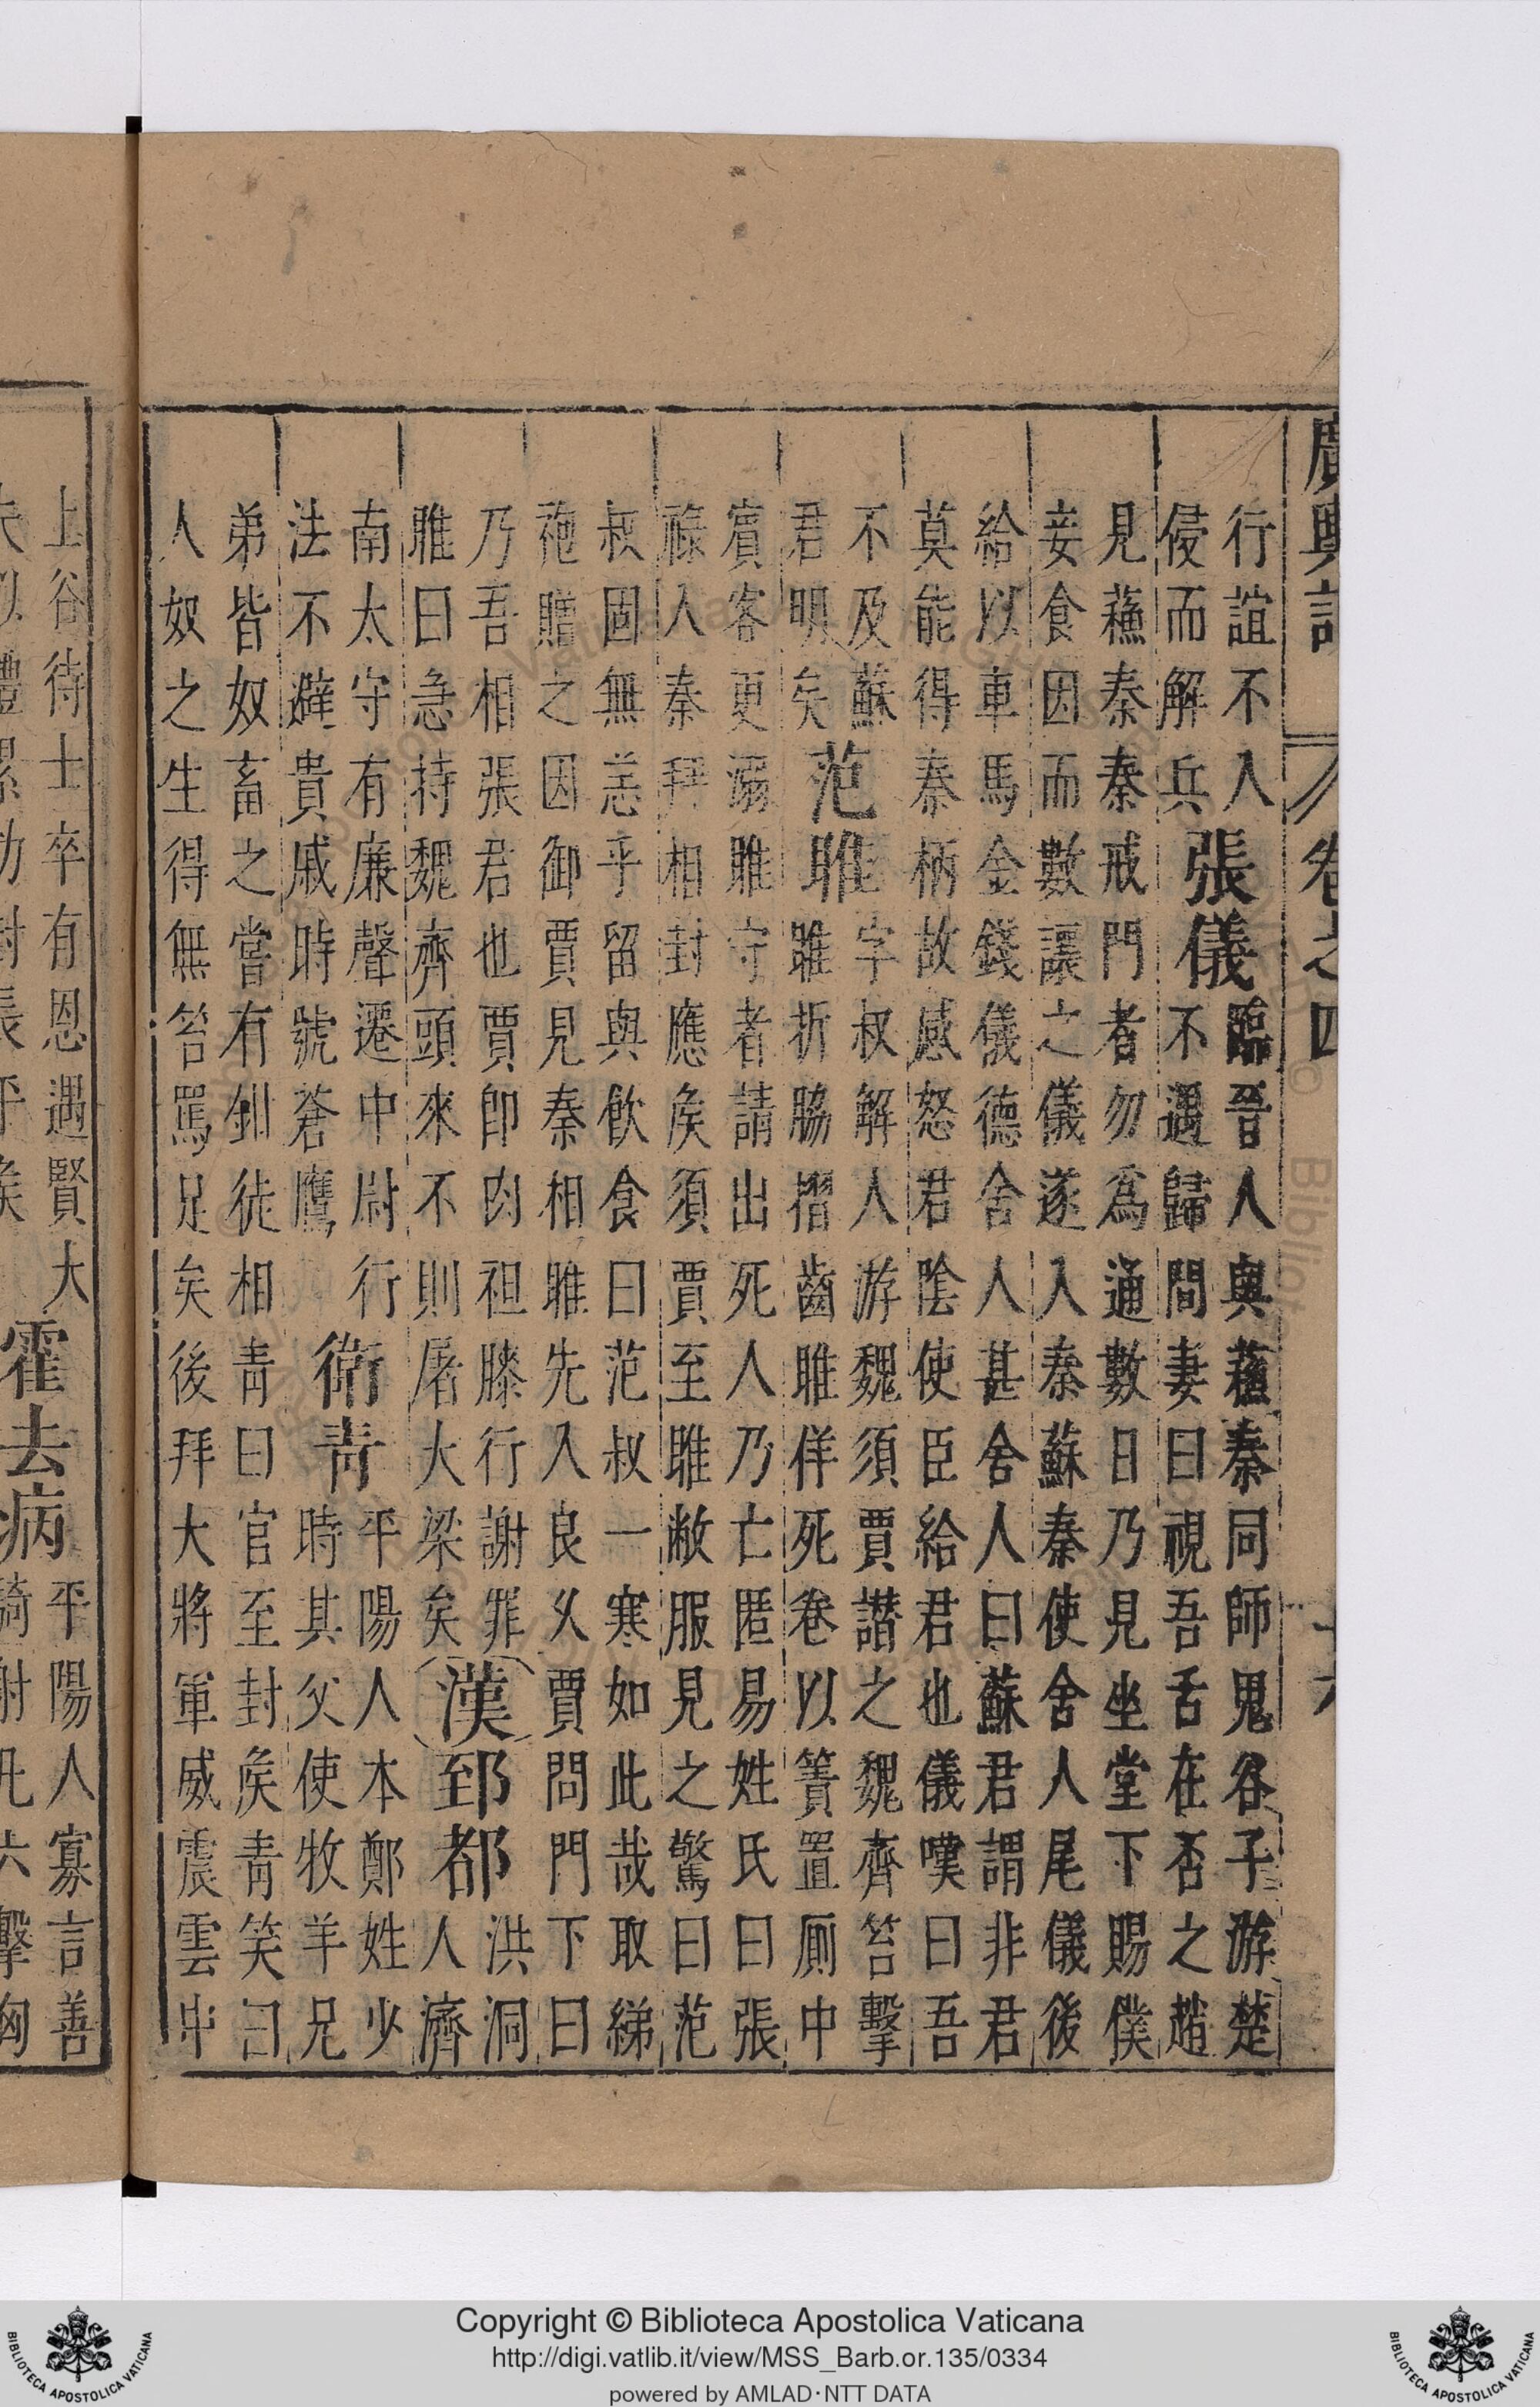 廣輿記 卷之四
行誼不入
侵而解兵
張儀
臨晉人與蘓秦同師鬼谷子游楚
不遇歸間妻曰視吾舌在否之趙
見蘓秦秦戒門者勿爲通數日乃見坐堂下賜僕
妾食因而數讓之儀遂入秦蘇秦使舍人尾儀後
給以車馬金錢儀德舍人甚舍人曰蘇君謂非君
莫能得秦柄故感怒君陰使臣給君也儀嘆曰吾
不及蘇
君明矣
范雎
字叔解人游魏須賈譖之魏齊笞擊
雎折脇摺齒雎佯死卷以簀置厠中
賓客更溺雎守者請出死人乃亡匿易姓氏曰張
祿人秦拜相封應矦須賈至雎敝服見之驚曰范
叔固無恙乎留與飲食曰范叔一寒如此哉取綈
袍贈之因御賈見秦相雎先入良乆賈問門下曰
乃吾相張君也賈卽肉袒膝行謝罪
雎曰急持魏齊頭來不則屠大梁矣
漢
郅都
洪洞
人濟
南太守有廉聲遷中尉行
法不避貴戚時號蒼鷹
衛青
平陽人本鄭姓少
時其父使牧羊兄
弟皆奴畜之嘗有鉗徒相青曰官至封矦青笑曰
人奴之生得無笞罵足矣後拜大將軍威震雲中
上谷待士卒有恩遇賢大
夫以禮累功封長平矦
霍去病
平陽人寡言善
騎射凡六擊匈
Copyright © Biblioteca Apostolica Vaticana
http://digi.vatlib.it/view/MSS_Barb.or.135/0334
powered by AMLAD·NTT DATA
BIBLIOTECA APOSTOLICA VATICANA
BIBLIOTECA APOSTOLICA VATICANA